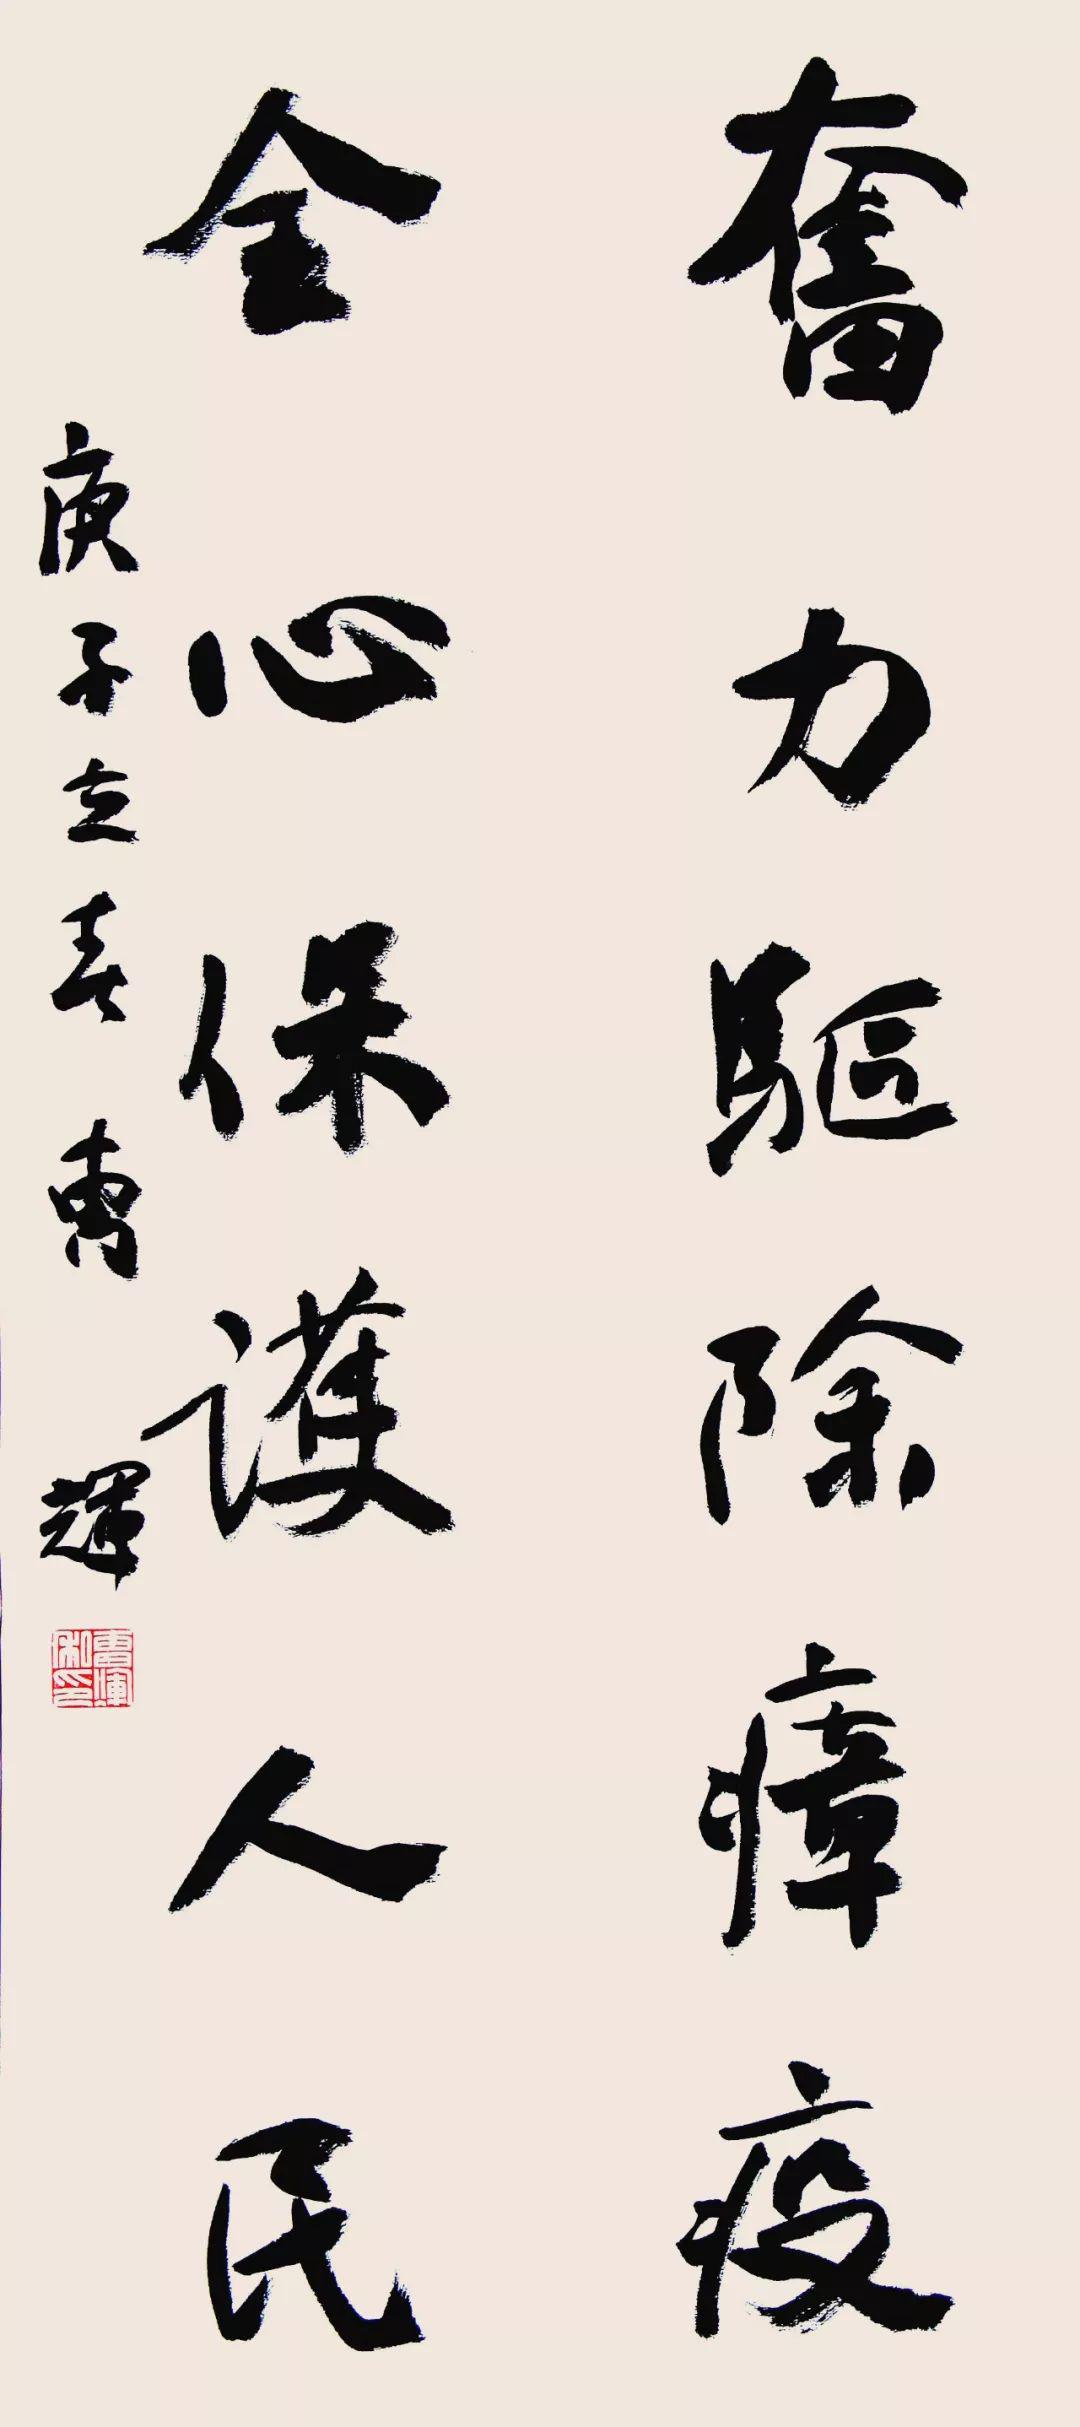 奮力驅除瘴疫
全心保護人民
庚子立春 曹輝